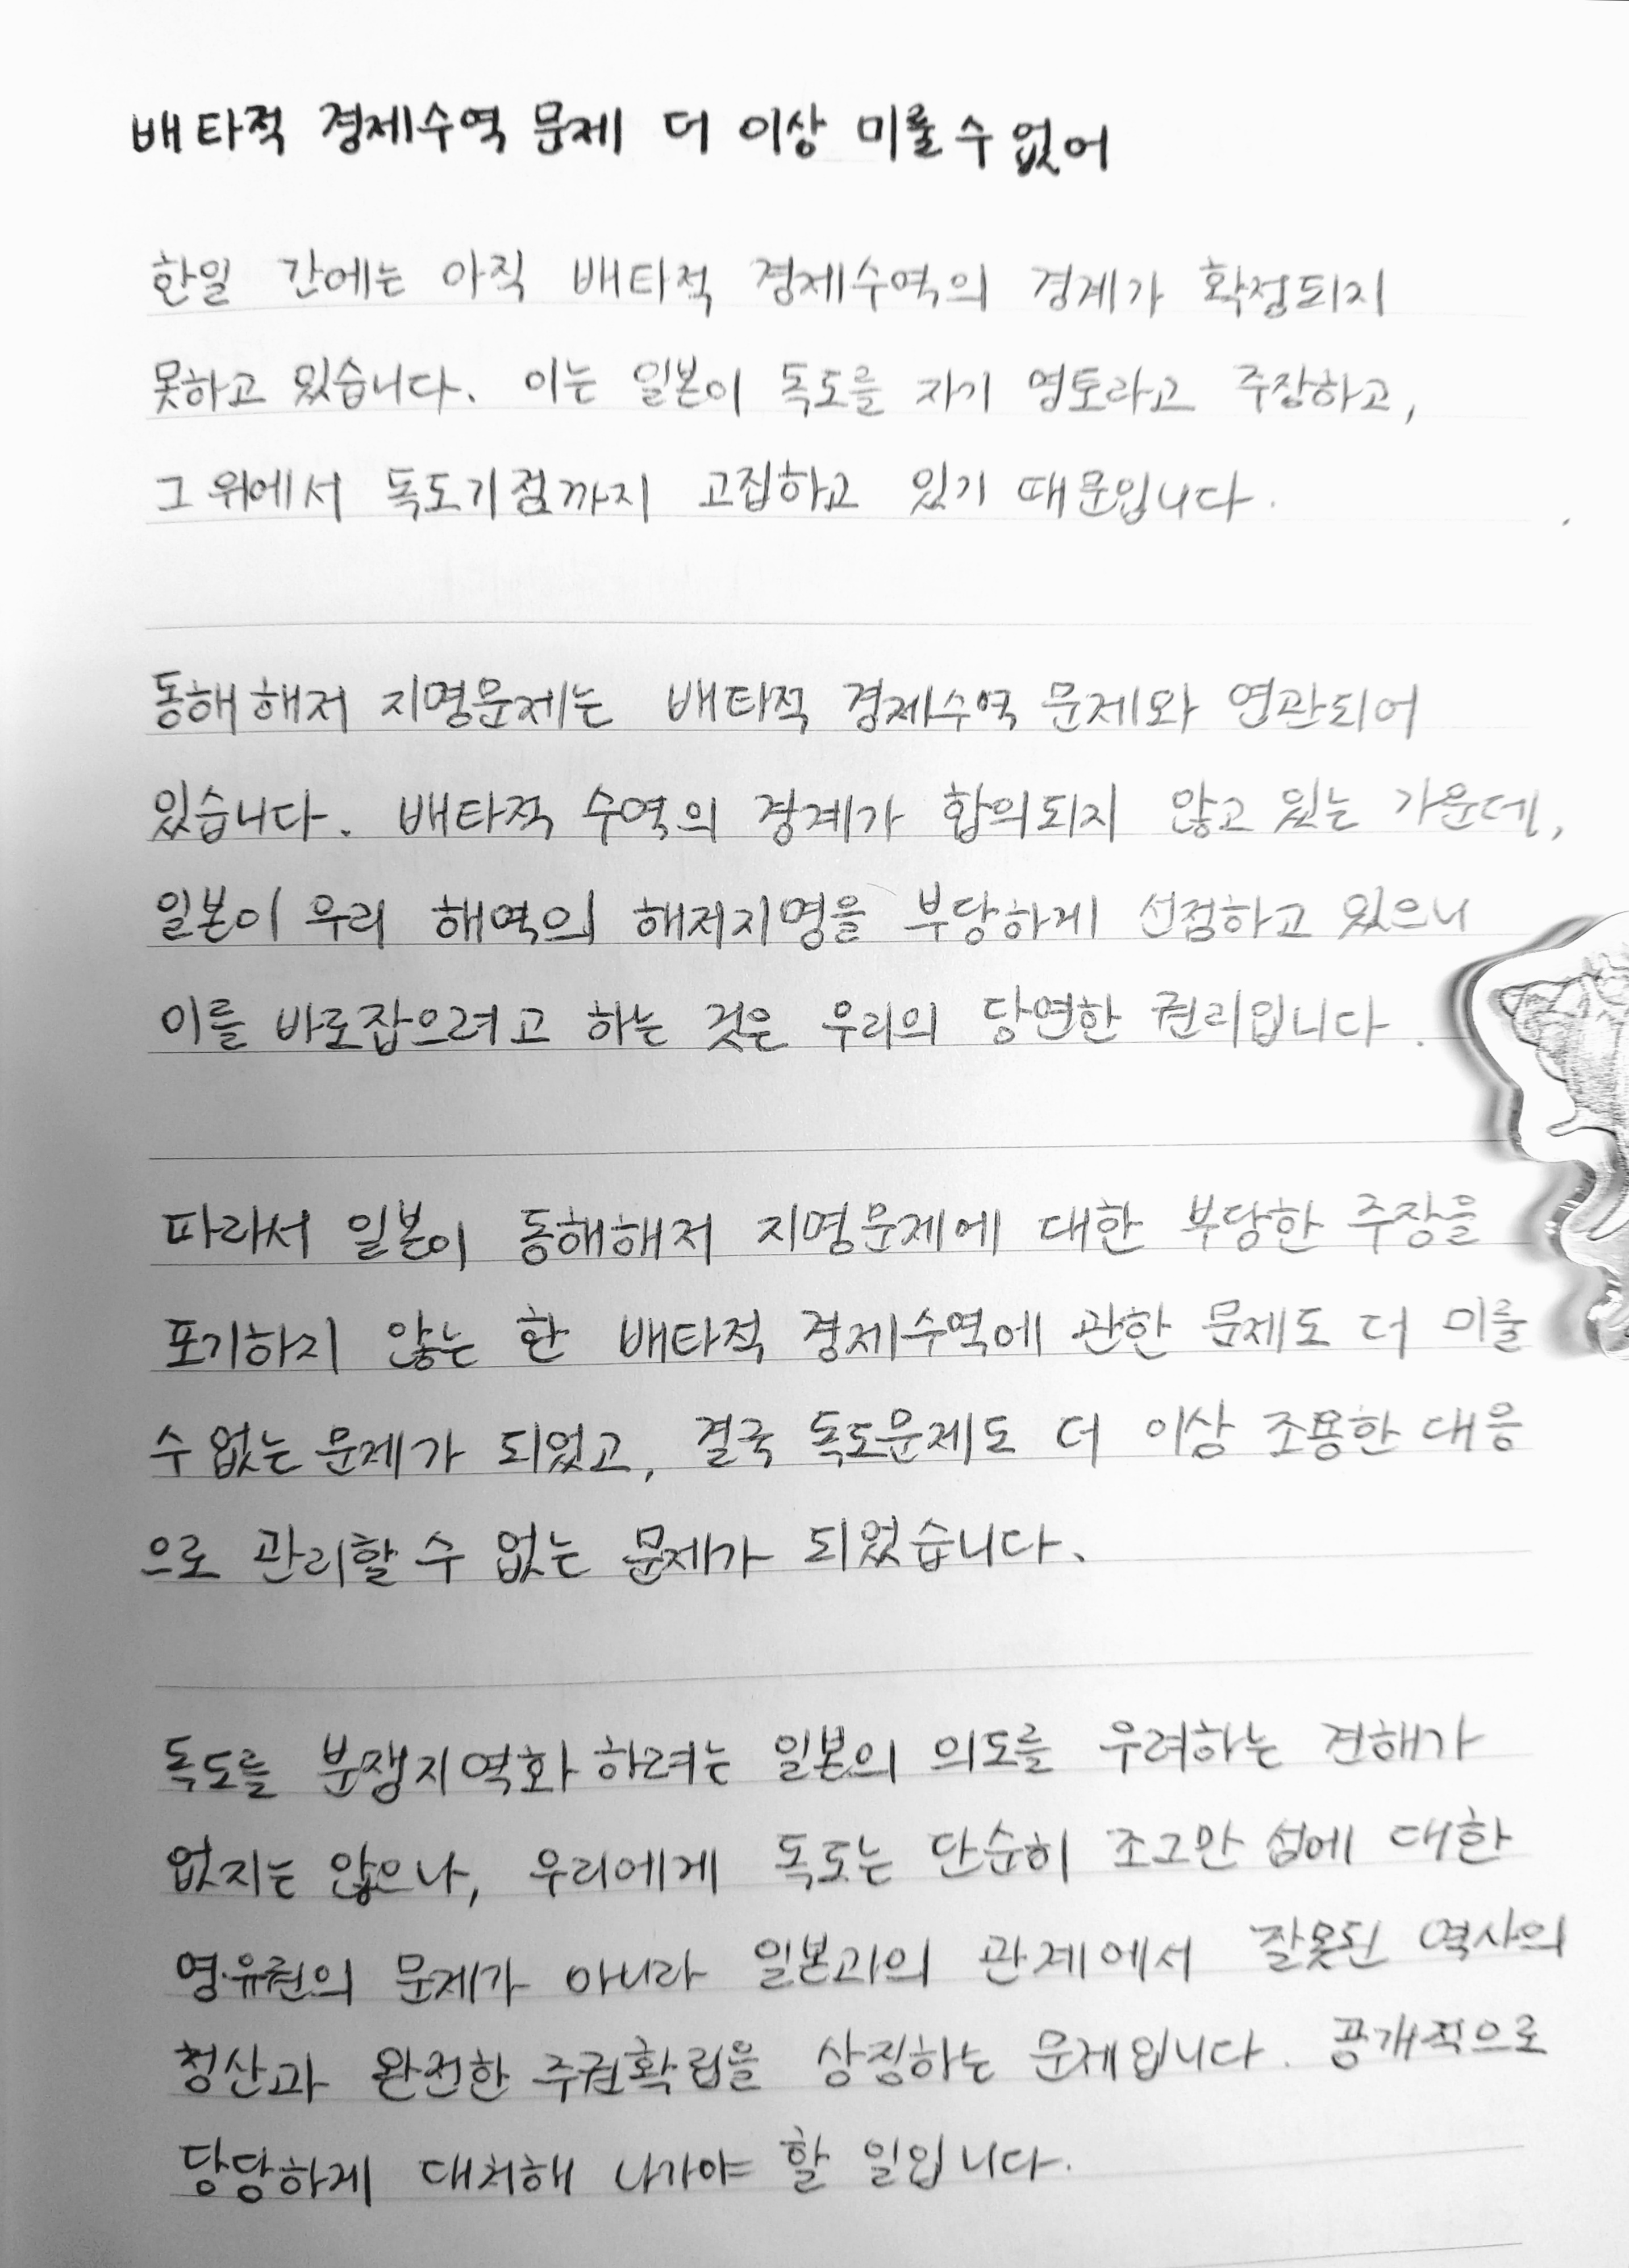 배타적 경제수역 문제 더 이상 미룰 수 없어
한일 간에는 아직 배타적 경제수역의 경계가 확정되지
못하고 있습니다. 이는 일본이 독도를 자기 영토라고 주장하고,
그 위에서 독도기점까지 고집하고 있기 때문입니다.
동해해저 지명문제는 배타적 경제수역 문제와 연관되어
있습니다. 배타적 수역의 경계가 합의되지 않고 있는 가운데,
일본이 우리 해역의 해저지명을 부당하게 선점하고 있으니
이를 바로잡으려고 하는 것은 우리의 당연한 권리입니다.
따라서 일본이 동해해저 지명문제에 대한 부당한 주장을
포기하지 않는 한 배타적 경제수역에 관한 문제도 더 미룰
수 없는 문제가 되었고, 결국 독도문제도 더 이상 조용한 대응
으로 관리할 수 없는 문제가 되었습니다.
독도를 분쟁지역화 하려는 일본의 의도를 우려하는 견해가
없지는 않으나, 우리에게 독도는 단순히 조그만 섬에 대한
영유권의 문제가 아니라 일본과의 관계에서 잘못된 역사의
청산과 완전한 주권확립을 상징하는 문제입니다. 공개적으로
당당하게 대처해 나가야 할 일입니다.